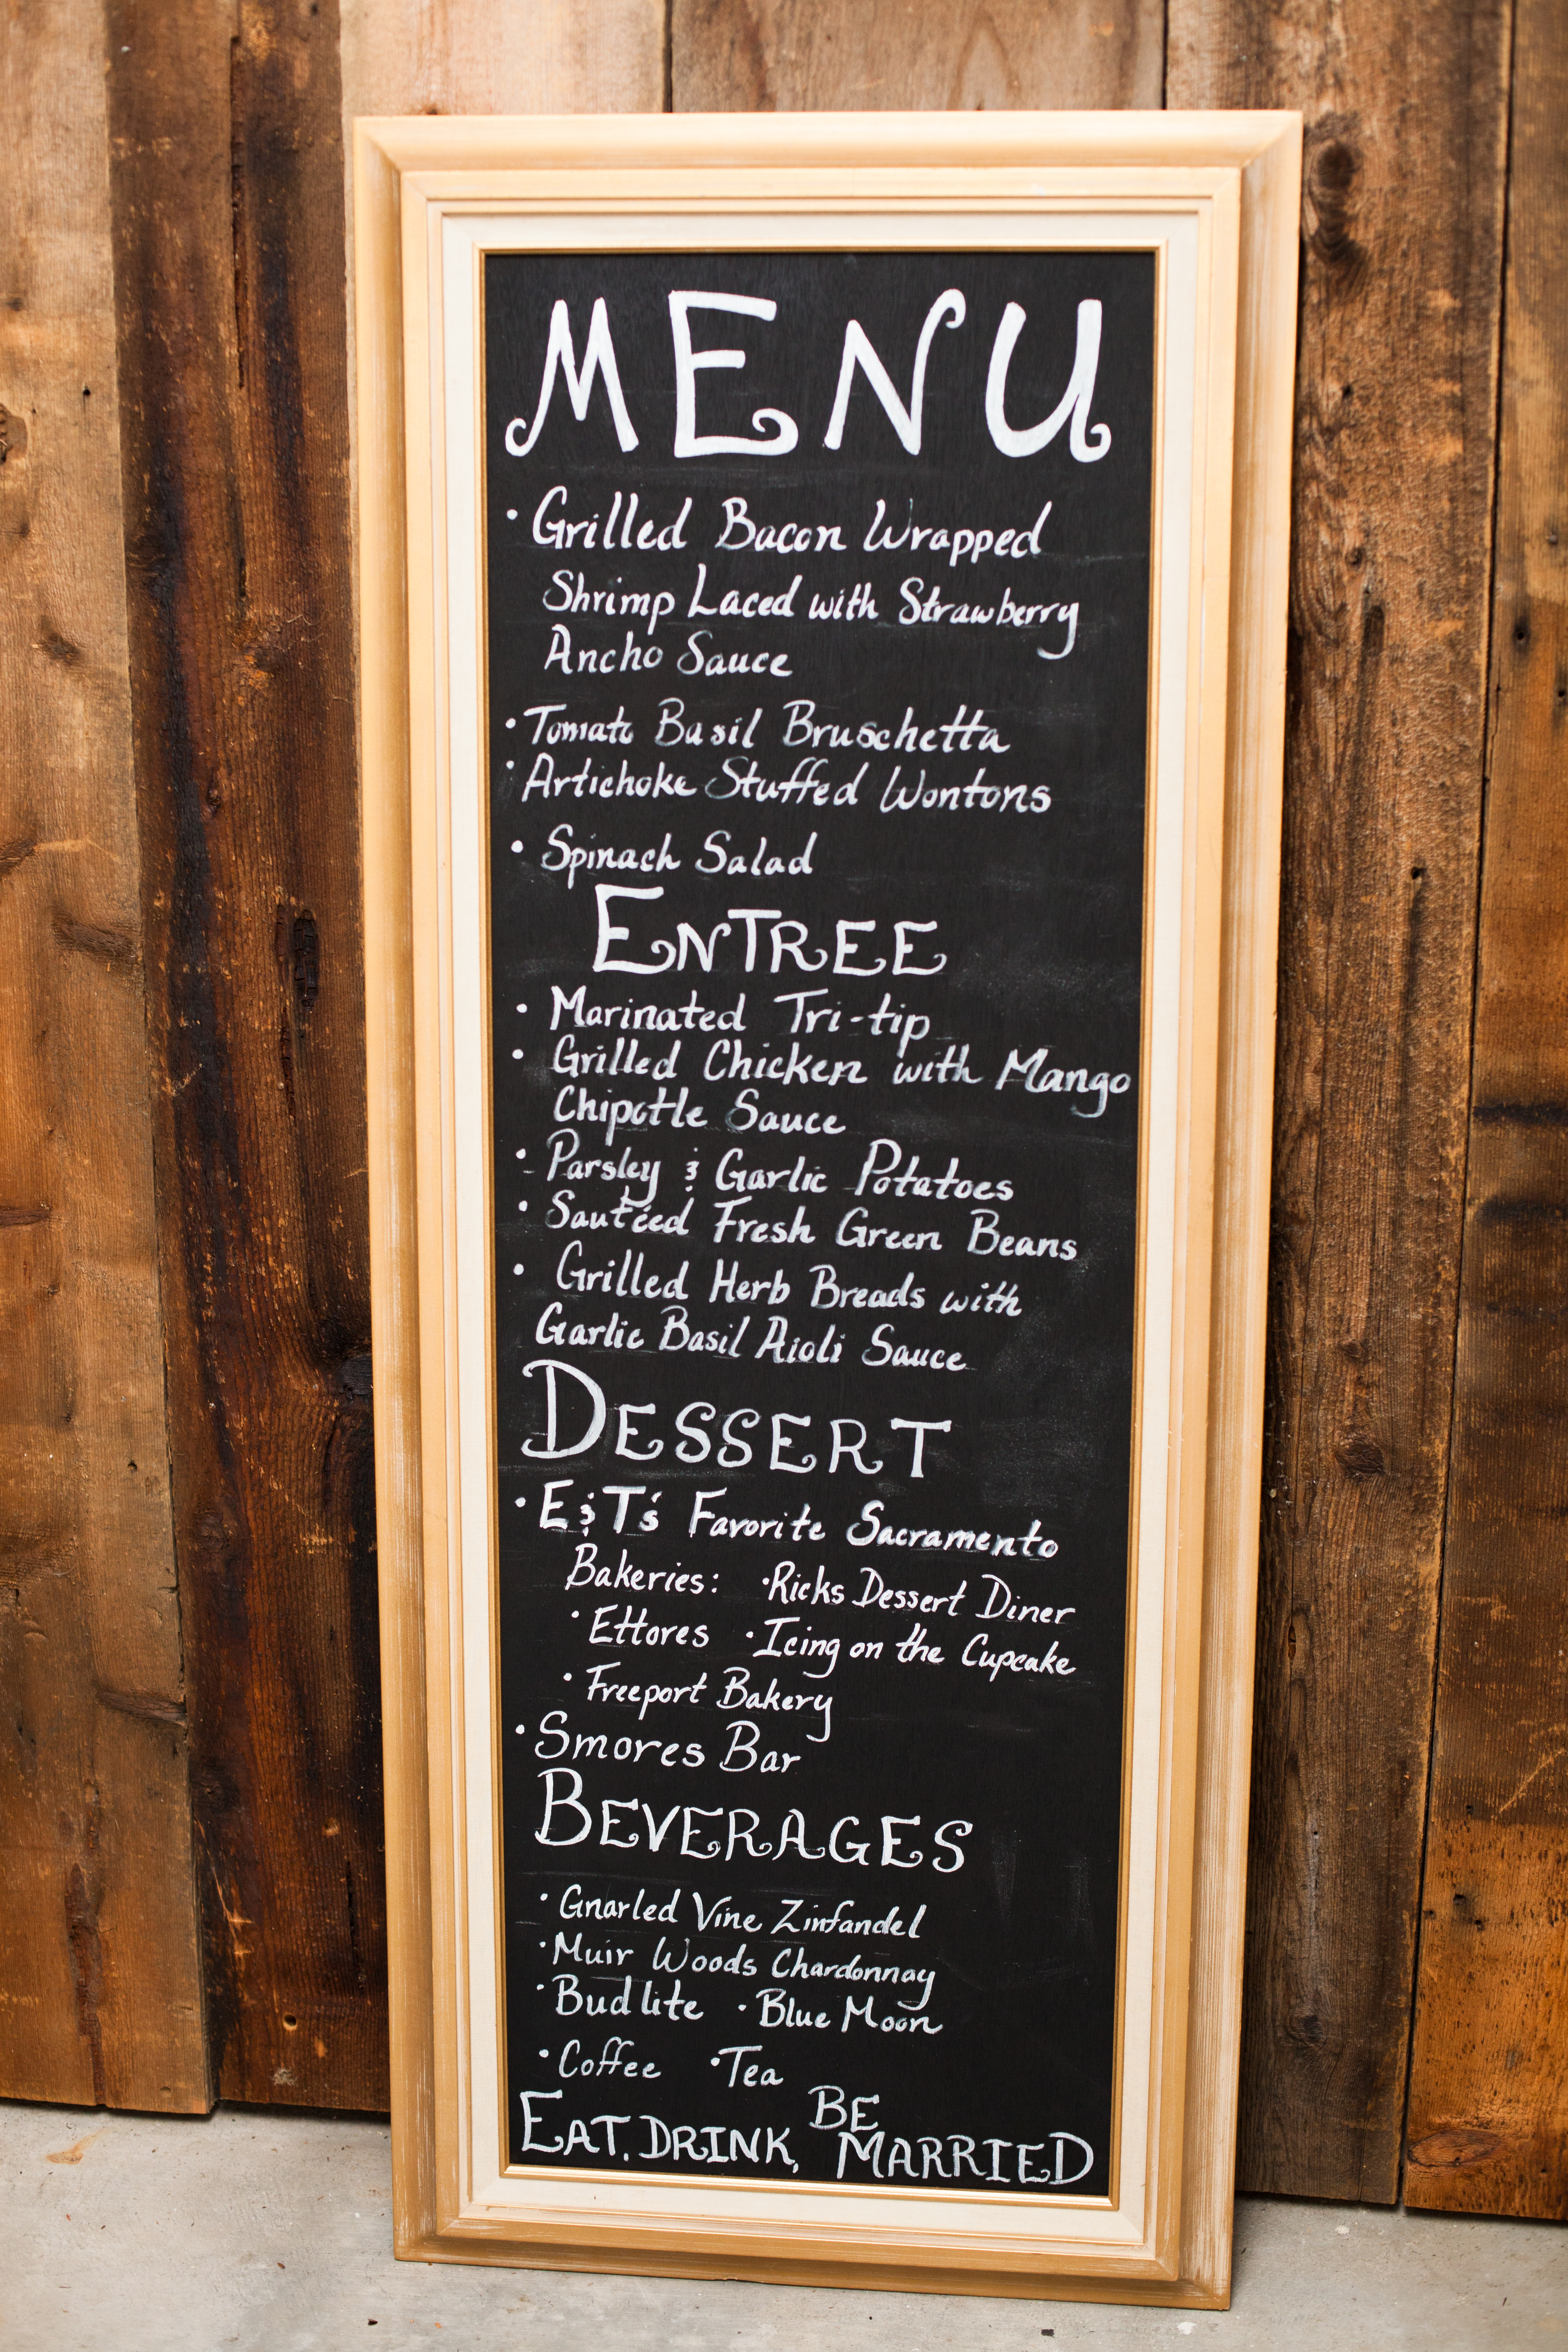 MENU
• Grilled Bacon Wrapped
Shrimp Laced with Strawberry
Ancho Sauce
• Tomato Basil Bruschetta
• Artichoke Stuffed Wontons
• Spinach Salad
ENTREE
• Marinated Tri-tip
• Grilled Chicken with Mango
Chipotle Sauce
• Parsley & Garlic Potatoes
• Sautéed Fresh Green Beans
• Grilled Herb Breads with
Garlic Basil Aioli Sauce
DESSERT
• E&T's Favorite Sacramento
Bakeries: • Ricks Dessert Diner
• Ettores • Icing on the Cupcake
• Freeport Bakery
• Smores Bar
BEVERAGES
• Gnarled Vine Zinfandel
• Muir Woods Chardonnay
• Bud lite • Blue Moon
• Coffee • Tea
EAT, DRINK, BE MARRIED